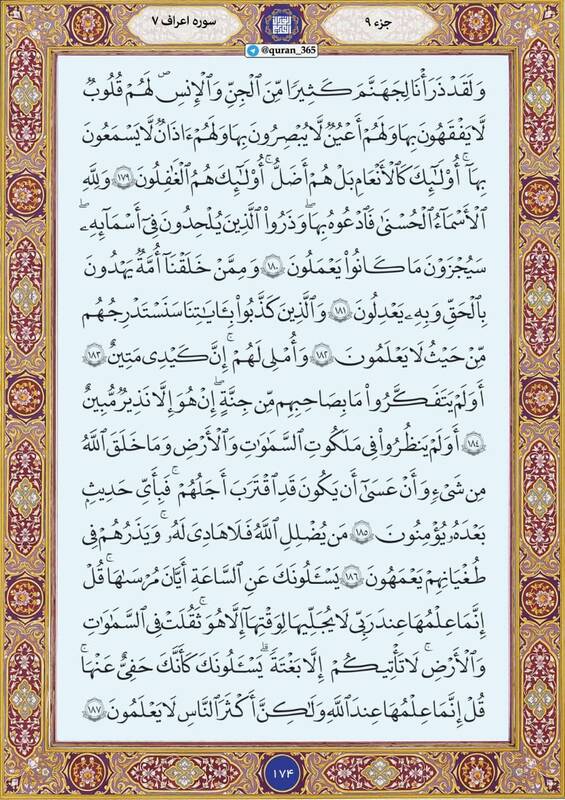 جزء ۹
سوره اعراف ۷
@quran_365
وَلَقَدْ ذَرَأْنَا لِجَهَنَّمَ كَثِيرًا مِّنَ ٱلْجِنِّ وَٱلْإِنسِ ۖ لَهُمْ قُلُوبٌ
لَّا يَفْقَهُونَ بِهَا وَلَهُمْ أَعْيُنٌ لَّا يُبْصِرُونَ بِهَا وَلَهُمْ ءَاذَانٌ لَّا يَسْمَعُونَ
بِهَآ ۚ أُو۟لَـٰٓئِكَ كَٱلْأَنْعَـٰمِ بَلْ هُمْ أَضَلُّ ۚ أُو۟لَـٰٓئِكَ هُمُ ٱلْغَـٰفِلُونَ ۱۷۹ وَلِلَّهِ
ٱلْأَسْمَآءُ ٱلْحُسْنَىٰ فَٱدْعُوهُ بِهَا ۖ وَذَرُوا۟ ٱلَّذِينَ يُلْحِدُونَ فِىٓ أَسْمَـٰٓئِهِۦ ۚ
سَيُجْزَوْنَ مَا كَانُوا۟ يَعْمَلُونَ ۱۸۰ وَمِمَّنْ خَلَقْنَآ أُمَّةٌ يَهْدُونَ
بِٱلْحَقِّ وَبِهِۦ يَعْدِلُونَ ۱۸۱ وَٱلَّذِينَ كَذَّبُوا۟ بِـَٔايَـٰتِنَا سَنَسْتَدْرِجُهُم
مِّنْ حَيْثُ لَا يَعْلَمُونَ ۱۸۲ وَأُمْلِى لَهُمْ ۚ إِنَّ كَيْدِى مَتِينٌ ۱۸۳
أَوَلَمْ يَتَفَكَّرُوا۟ ۗ مَا بِصَاحِبِهِم مِّن جِنَّةٍ ۚ إِنْ هُوَ إِلَّا نَذِيرٌ مُّبِينٌ
۱۸۴ أَوَلَمْ يَنظُرُوا۟ فِى مَلَكُوتِ ٱلسَّمَـٰوَٰتِ وَٱلْأَرْضِ وَمَا خَلَقَ ٱللَّهُ
مِن شَىْءٍ وَأَنْ عَسَىٰٓ أَن يَكُونَ قَدِ ٱقْتَرَبَ أَجَلُهُمْ ۖ فَبِأَىِّ حَدِيثٍ
بَعْدَهُۥ يُؤْمِنُونَ ۱۸۵ مَن يُضْلِلِ ٱللَّهُ فَلَا هَادِىَ لَهُۥ ۚ وَيَذَرُهُمْ فِى
طُغْيَـٰنِهِمْ يَعْمَهُونَ ۱۸۶ يَسْـَٔلُونَكَ عَنِ ٱلسَّاعَةِ أَيَّانَ مُرْسَىٰهَا ۖ قُلْ
إِنَّمَا عِلْمُهَا عِندَ رَبِّى ۖ لَا يُجَلِّيهَا لِوَقْتِهَآ إِلَّا هُوَ ۚ ثَقُلَتْ فِى ٱلسَّمَـٰوَٰتِ
وَٱلْأَرْضِ ۚ لَا تَأْتِيكُمْ إِلَّا بَغْتَةً ۗ يَسْـَٔلُونَكَ كَأَنَّكَ حَفِىٌّ عَنْهَا ۖ
قُلْ إِنَّمَا عِلْمُهَا عِندَ ٱللَّهِ وَلَـٰكِنَّ أَكْثَرَ ٱلنَّاسِ لَا يَعْلَمُونَ ۱۸۷
۱۷۴